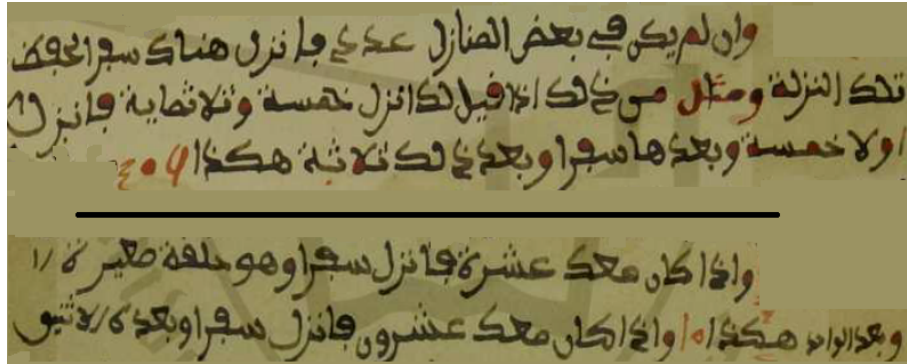 وان لم يكن في بعض المنازل عدد فانزل هناك سفرا لحفظ
تلك المنزلة ومثل من ذلك اذا قيل لك انزل خمسة وثلاثماية فانزل
اولا خمسة وبعدها سفرا وبعد ذلك ثلاثة هكذا
واذا كان معك عشرة فانزل سفرا وهو حلقة صغيرة
وبعد الواحد هكذا واذا كان معك عشرون فانزل سفرا وبعده الاثنين